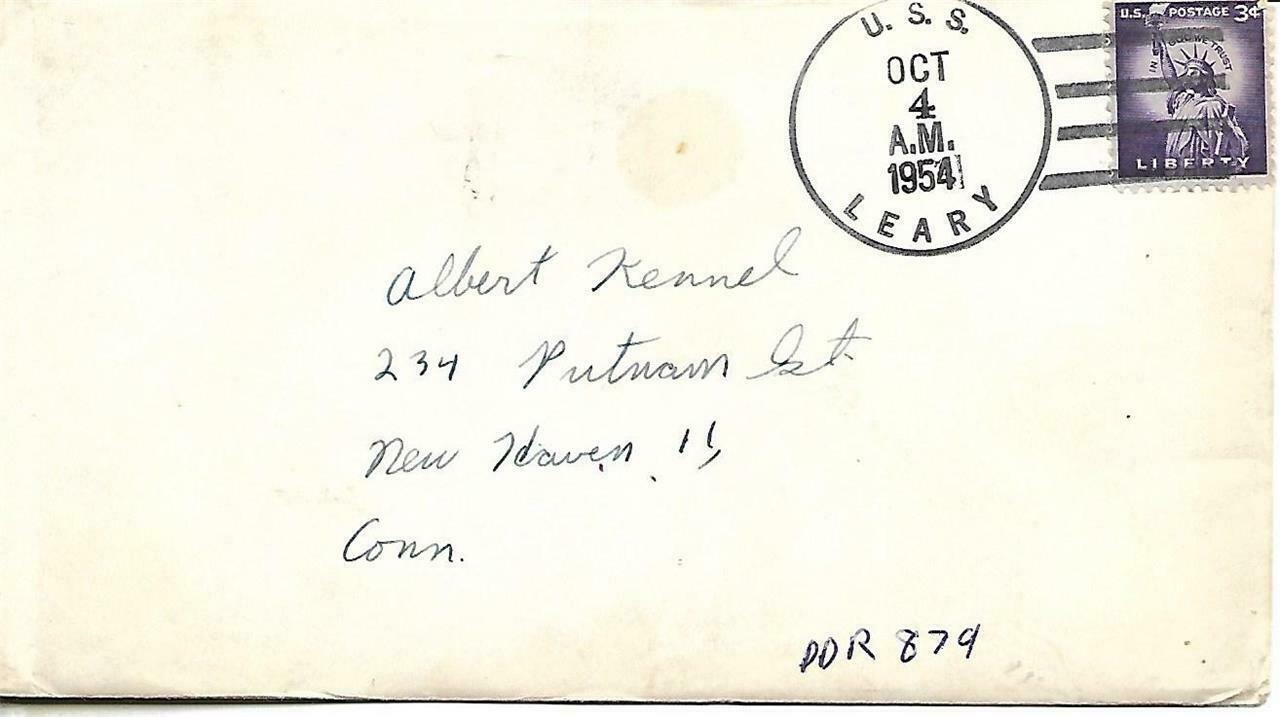 U.S.S.
OCT
4
A.M.
1954
LEARY
U.S. POSTAGE 3¢
IN GOD WE TRUST
LIBERTY
Albert Kennel
234 Putnam St.
New Haven 11,
Conn.
DDR 879